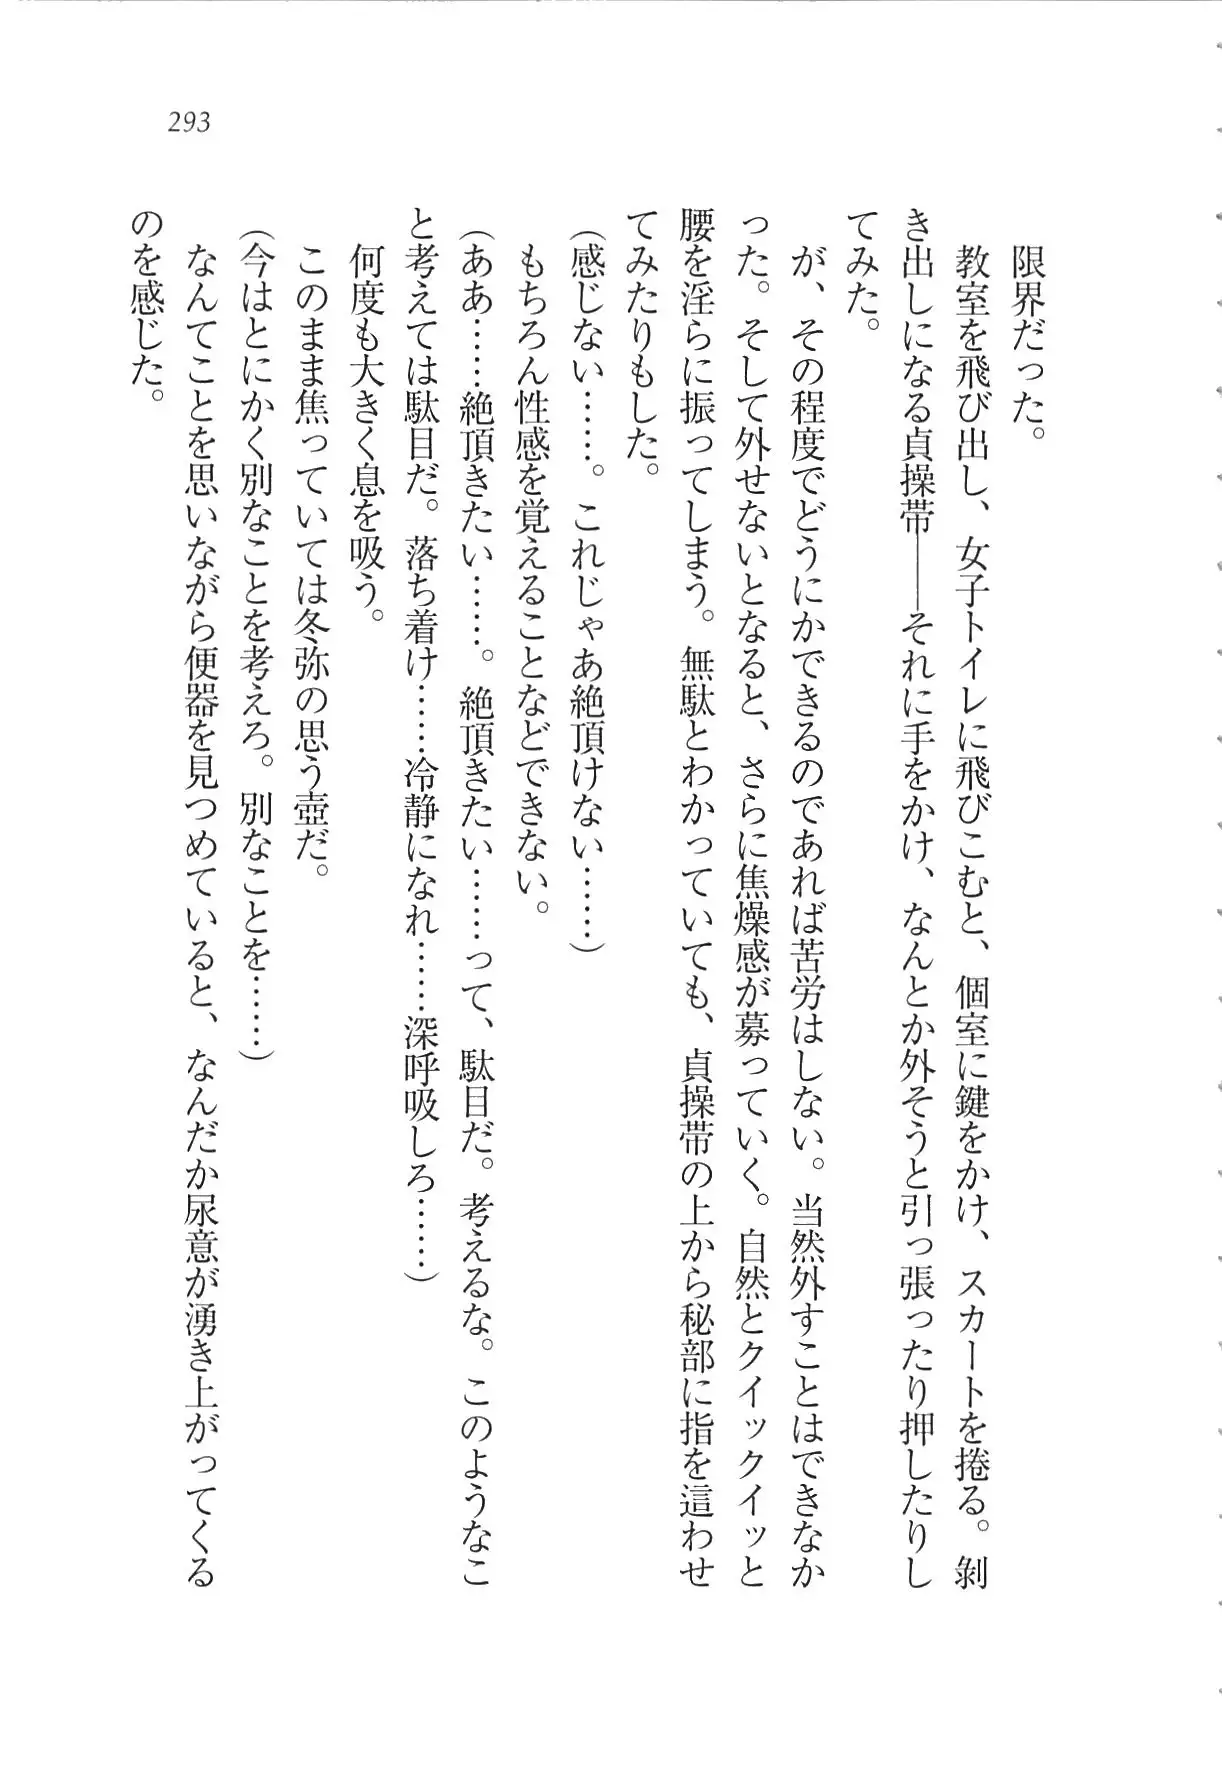 293
限界だった。
教室を飛び出し、女子トイレに飛びこむと、個室に鍵をかけ、スカートを捲る。剝
き出しになる貞操帯――それに手をかけ、なんとか外そうと引っ張ったり押したりし
てみた。
が、その程度でどうにかできるのであれば苦労はしない。当然外すことはできなか
った。そして外せないとなると、さらに焦燥感が募っていく。自然とクイックイッと
腰を淫らに振ってしまう。無駄とわかっていても、貞操帯の上から秘部に指を這わせ
てみたりもした。
（感じない……。これじゃあ絶頂けない……）
もちろん性感を覚えることなどできない。
（ああ……絶頂きたい……。絶頂きたい……って、駄目だ。考えるな。このようなこ
と考えては駄目だ。落ち着け……冷静になれ……深呼吸しろ……）
何度も大きく息を吸う。
このまま焦っていては冬弥の思う壺だ。
（今はとにかく別なことを考えろ。別なことを……）
なんてことを思いながら便器を見つめていると、なんだか尿意が湧き上がってくる
のを感じた。